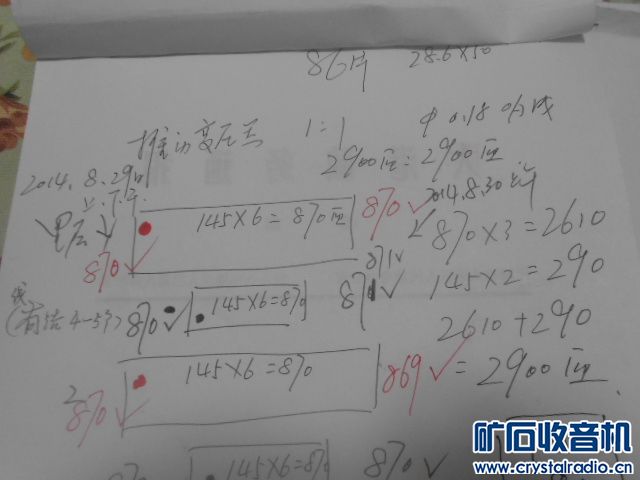 86片 28.6×50
推动变压器 1:1 φ0.18 的线
2900匝:2900匝
2014.8.29日
上下午
145×6=870匝
870✓
2014.8.30
870✓
870×3=2610
871✓
145×2=290
870✓
145×6=870
871✓
2610+290
145×6=870
2
870✓
869✓
=2900匝
145×6=870
870✓
矿石收音机
www.crystalradio.cn